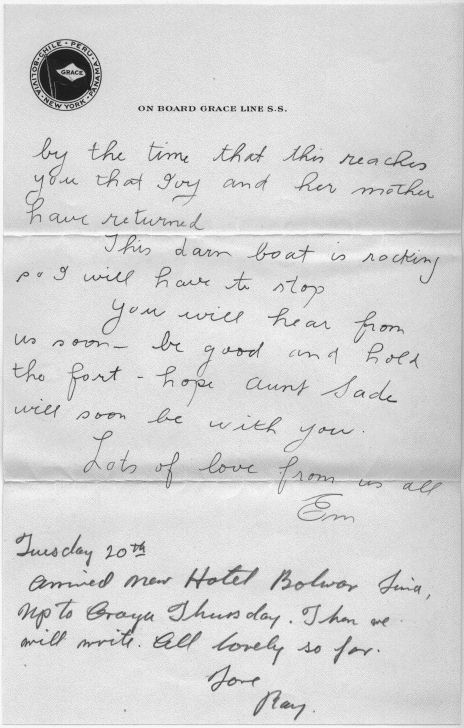 CHILE · PERU · PANAMA · NEW YORK · BOLIVIA
GRACE
ON BOARD GRACE LINE S.S.
by the time that this reaches
you that Ivy and her mother
have returned
This darn boat is rocking
so I will have to stop
You will hear from
us soon - be good and hold
the fort - hope Aunt Sade
will soon be with you.
Lots of love from us all
Em
Tuesday 20th
Arrived now Hotel Bolivar Lima,
up to Oroya Thursday. Then we
will write. All lovely so far.
Love
Ray.